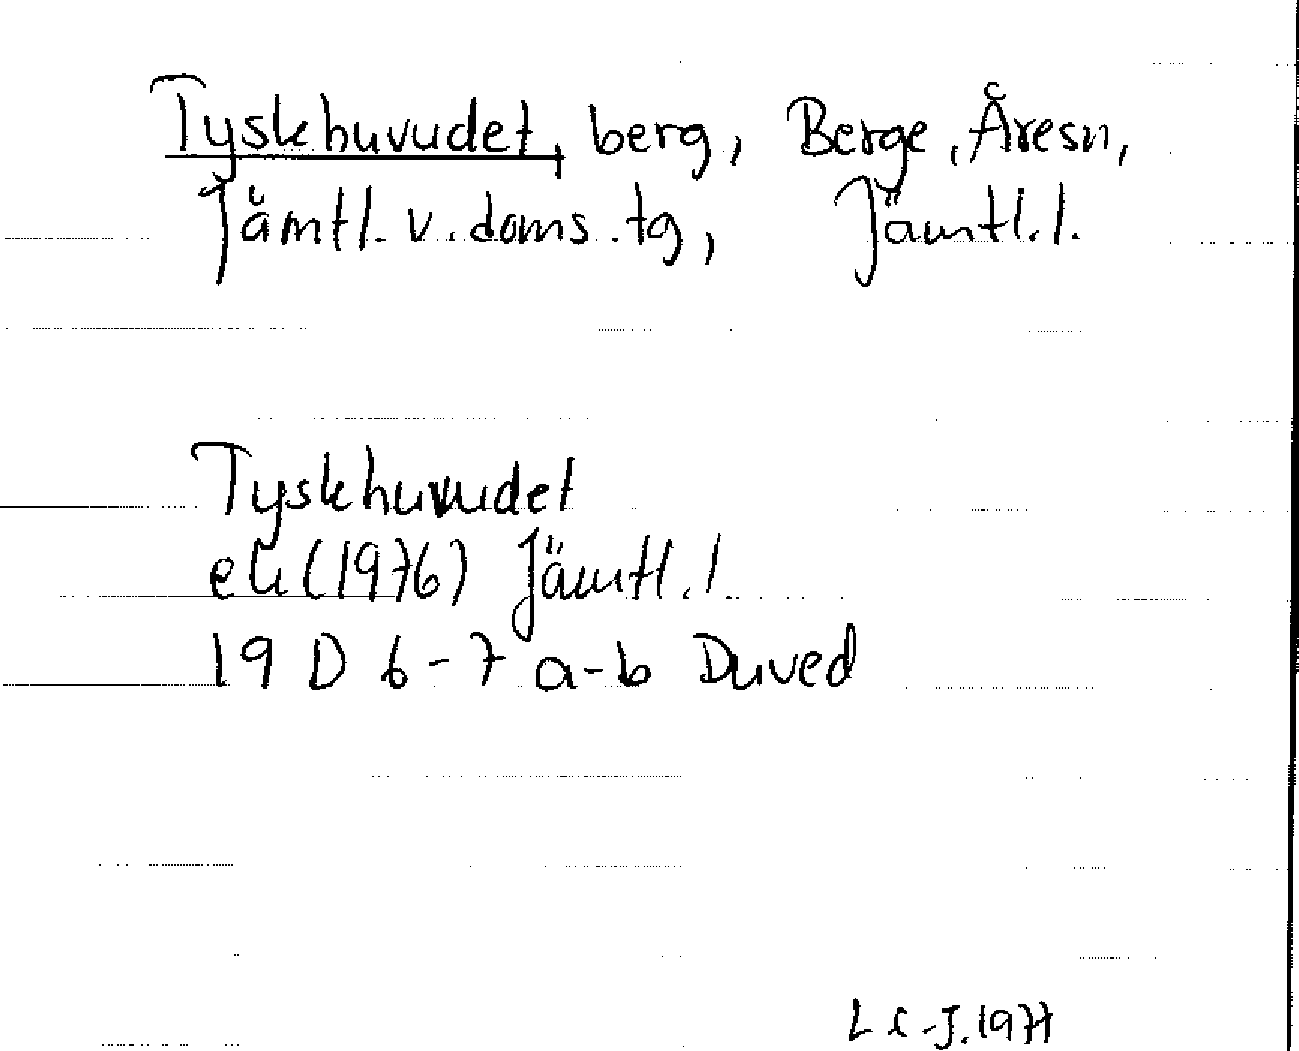 Tyskhuvudet, berg, Berge, Åresn,
Jämtl. v. doms. tg, Jämtl. l.
Tyskhuvudet
ek (1976) Jämtl. l.
19 D 6-7 a-b Duved
1977